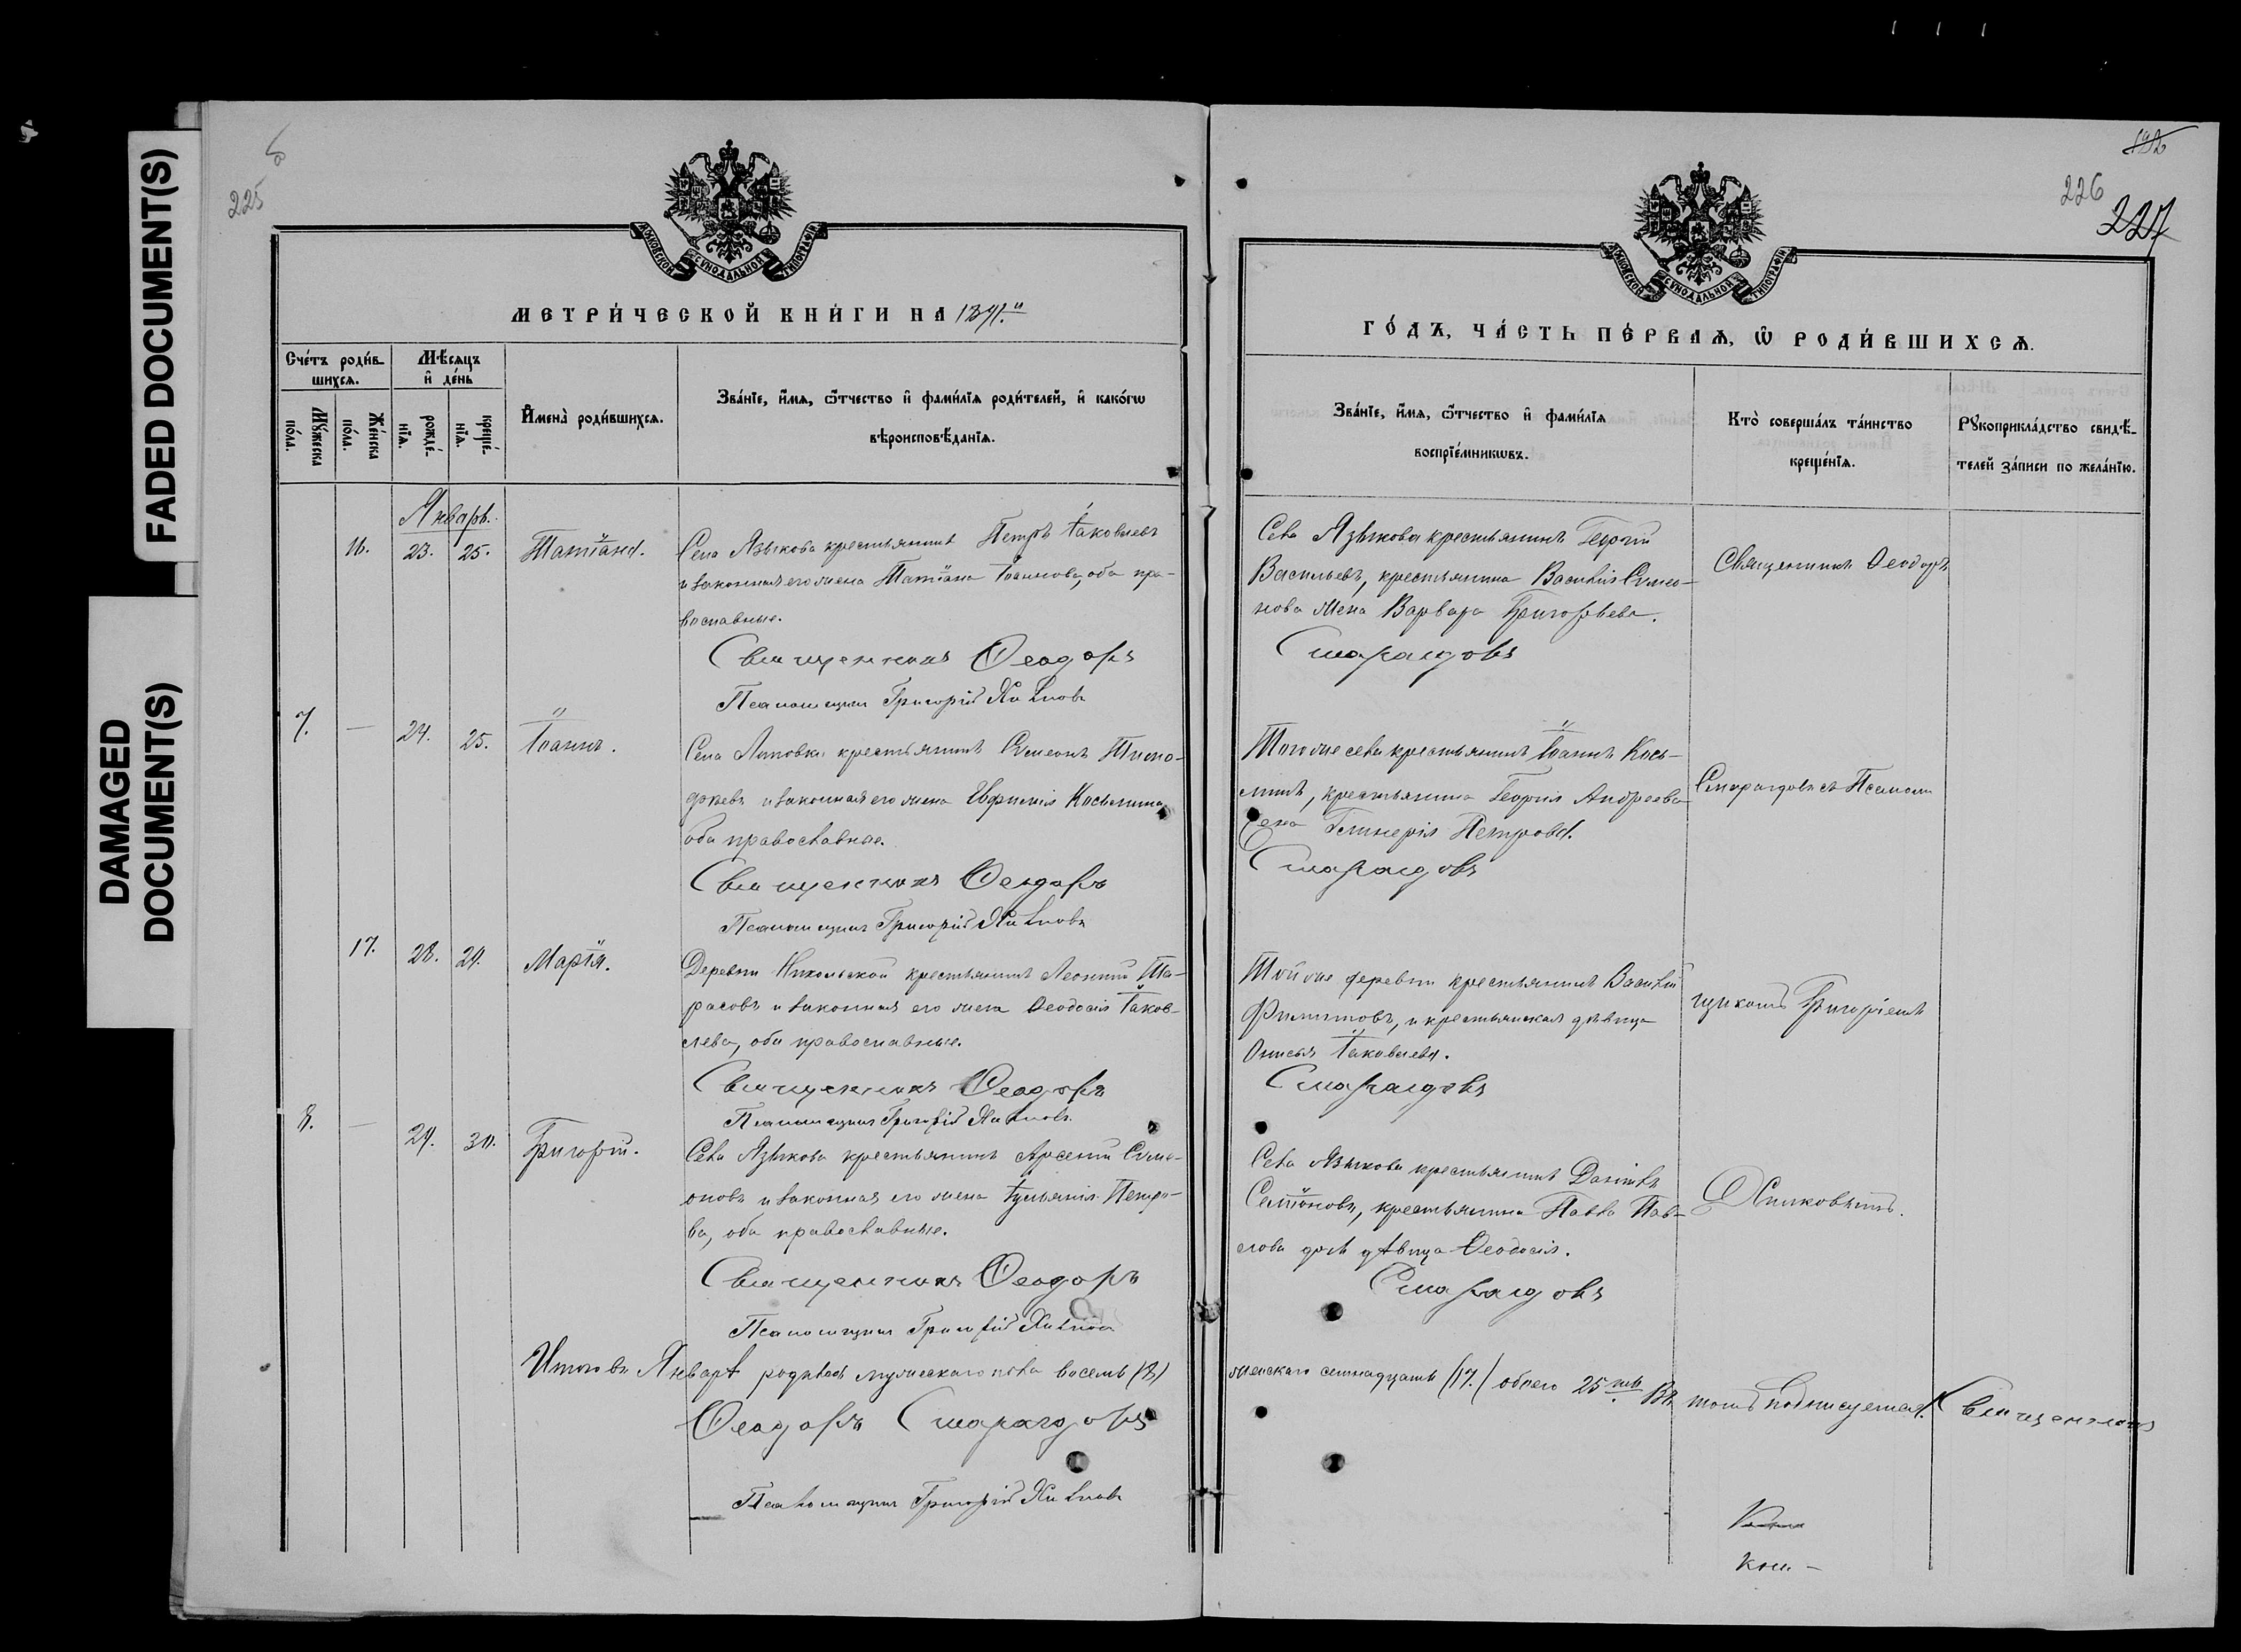 FADED DOCUMENT(S)
DAMAGED
DOCUMENT(S)
225
МОСКОВСКОЙ СѴНОДАЛЬНОЙ ТИПОГРАФІИ
МЕТРИ́ЧЕСКОЙ КНИ́ГИ НА 1891.
Сче́тъ роди́в-
шихсѧ.
Мѣ́сѧцъ
и҆ де́нь
Мꙋ́жеска
по́ла.
Же́нска
по́ла.
рожде́-
нїѧ.
креще́-
нїѧ.
И҆мена̀ роди́вшихсѧ.
Зва́нїе, и҆́мѧ, ѻ҆́тчество и҆ фами́лїѧ роди́телей, и҆ како́гѡ
вѣроисповѣ́данїѧ.
Январь.
16. 23. 25. Татіана.
Села Языкова крестьянинъ Петръ Іаковлевъ
и законная его жена Татіана Іоаннова, оба пра-
вославные.
Священникъ Ѳеодоръ
Псаломщикъ Григорій Хилковъ
7. — 24. 25. Іоаннъ.
Села крестьянинъ Симеонъ Тимо-
ѳеевъ и законная его жена Евфимія Косьмина,
оба православные.
Священникъ Ѳеодоръ
Псаломщикъ Григорій Хилковъ
17. 28. 29. Марія.
Деревни Никольской крестьянинъ Леонтій Та-
расовъ и законная его жена Ѳеодосія Іаков-
лева, оба православные.
Священникъ Ѳеодоръ
Псаломщикъ Григорій Хилковъ
8. — 29. 30. Григорій.
Села Языкова крестьянинъ Арсеній Симе-
оновъ и законная его жена Іуліанія Петро-
ва, оба православные.
Священникъ Ѳеодоръ
Псаломщикъ Григорій Хилковъ
Итого въ Январѣ родилось мужескаго пола восемь (8)
Ѳеодоръ Смарагдовъ
Псаломщикъ Григорій Хилковъ
226
227
МОСКОВСКОЙ СѴНОДАЛЬНОЙ ТИПОГРАФІИ
ГО́ДЪ, ЧА́СТЬ ПЕ́РВАѦ, Ѽ РОДИ́ВШИХСѦ.
Зва́нїе, и҆́мѧ, ѻ҆́тчество и҆ фами́лїѧ
воспрїе́мникѡвъ.
Кто̀ соверша́лъ та́инство
креще́нїѧ.
Рꙋкоприкла́дство свидѣ́-
телей за́писи по жела́нїю.
Села Языкова крестьянинъ Георгій
Васильевъ, крестьянина Василія Симео-
нова жена Варвара Григорьева.
Смарагдовъ
Священникъ Ѳеодоръ
Тогоже села крестьянинъ Іоаннъ Кось-
минъ, крестьянина Георгія Андреева
жена Гликерія Петрова.
Смарагдовъ
Смарагдовъ съ Псалом
Тойже деревни крестьянинъ Василій
Филипповъ, и крестьянская дѣвица
Іаковлева.
Смарагдовъ
щикомъ Григоріемъ
Села Языкова крестьянинъ Даніилъ
Семіоновъ, крестьянина Павла Пав-
лова дочь дѣвица Ѳеодосія.
Смарагдовъ
Хилковымъ.
женскаго семнадцать (17.) обоего 25 ть. Въ томъ подписуемся. Священникъ